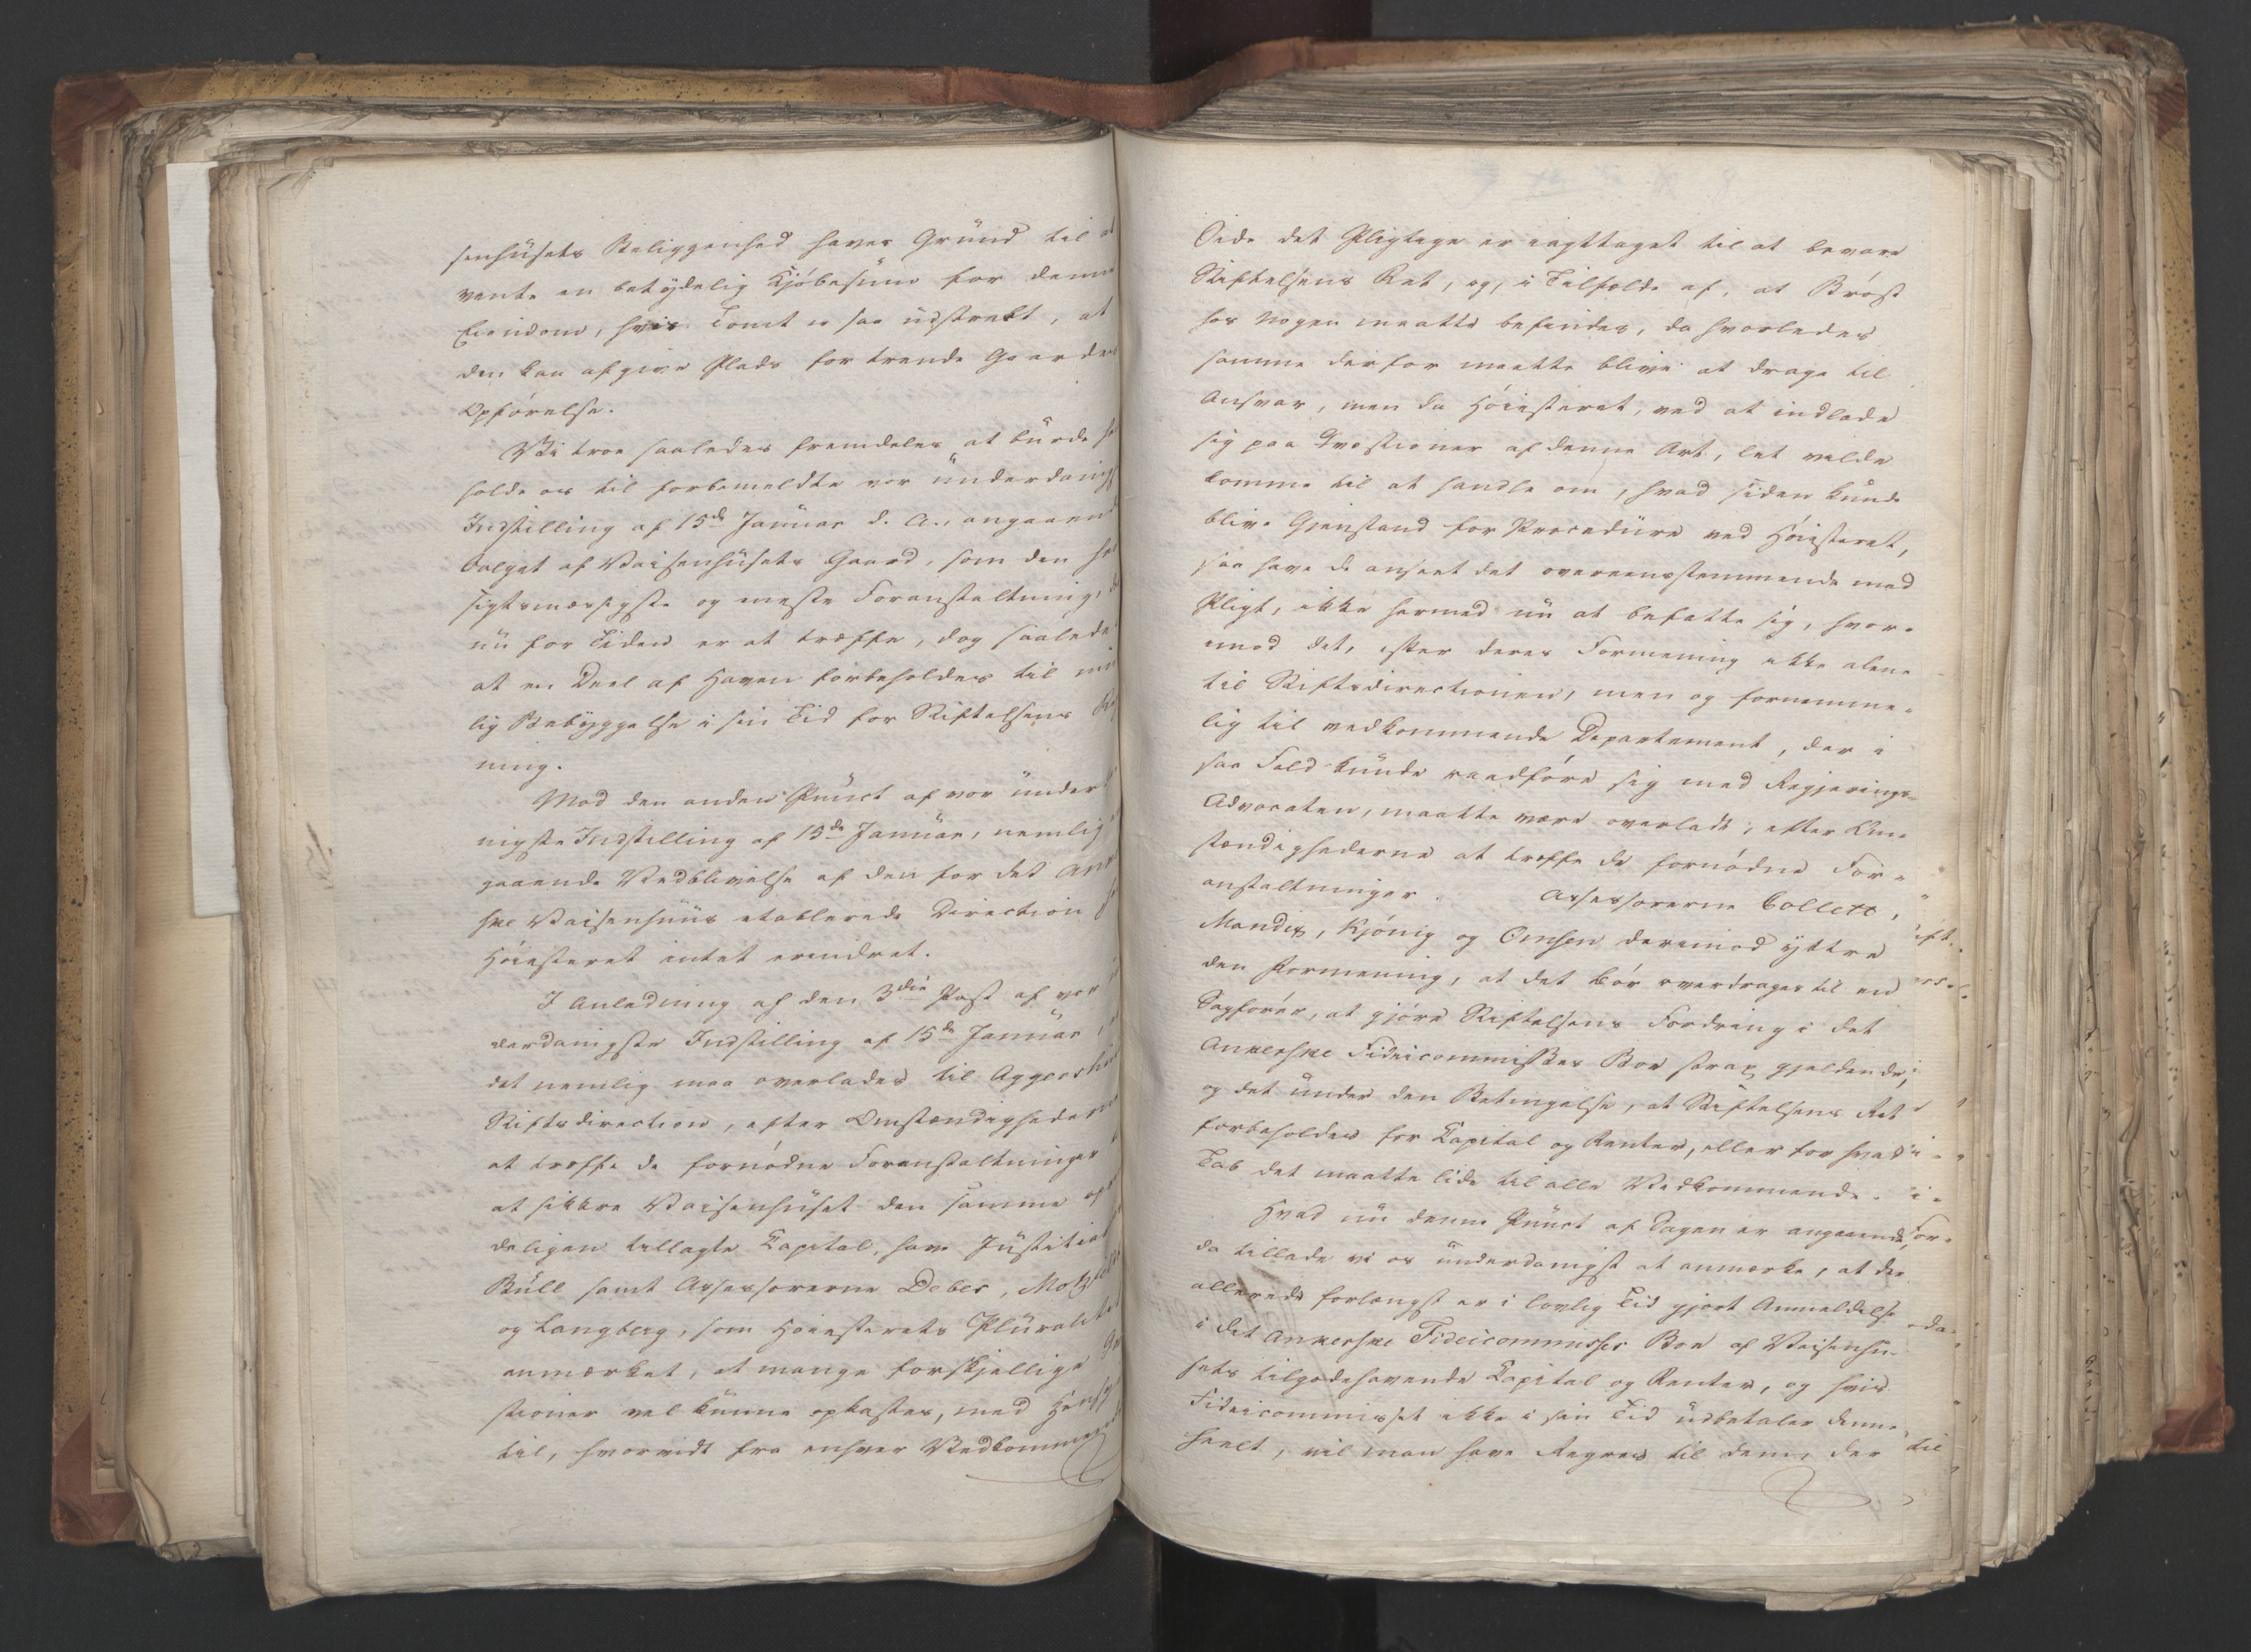 senhusets Beliggenhed haves Grund til at
vente en betydelig Kjøbesum for denne
Eiendom, hvis Tomt er saa udstrakt, at
den kan afgive Plads for trende Gaardes
Opførelse.
Vi troe saaledes fremdeles at burde
holde os til forbemeldte vor underdanigst
Indstilling af 15de Januar d. A., angaaend
Salget af Vaisenhusets Gaard, som den
sigtsmæssigste og meste Foranstaltning,
nu for Tiden er at træffe, dog saalede
at en Deel af Haven forbeholdes til
lig Bebyggelse i sin Tid for Stiftelsens
ning.
Mod den anden Punct af vor under
nigste Indstilling af 15de Januar, nemlig
gaaende Vedblivelse af den for det Anker
ske Vaisenhuus etablerede Direction
Høiesteret intet erindret.
I Anledning af den 3die Post af vor
derdanigste Indstilling af 15de Januar,
det nemlig maa overlades til Aggershuus
Stiftsdirection, efter Omstændighederne
at træffe de fornødne Foranstaltninger
at sikkre Vaisenhuset den samme op
deligen tillagte Capital, have Justitiar
Bull samt Assessorerne Debes, Motzfeldt
og Langberg, som Høiesterets Pluralitet
anmærket, at mange forskjellige Qvæ
stioner vel kunne opkastes, med Hensyn
til, hvorvidt fra enhver Vedkommende
Side det Pligtige er iagttaget til at bevare
Stiftelsens Ret, og, i Tilfælde af, at Brøst
hos Nogen maatte befindes, da hvorledes
samme derfor maatte blive at drage til
Ansvar, men da Høiesteret, ved at indlade
sig paa Qvæstioner af denne Art, let vilde
komme til at handle om, hvad siden kunde
blive Gjenstand for Procedure ved Høiesteret,
saa have de anseet det overeensstemmende med
Pligt, ikke hermed nu at befatte sig, hvor-
imod det, efter deres Formening ikke alene
til Stiftsdirectionen, men og fornemme-
lig til vedkommende Departement, der i
saa Fald kunde raadføre sig med Regjerings-
Advocaten, maatte være overladt, efter Om-
stændighederne at træffe de fornødne For-
anstaltninger. Assessorerne Collett,
Mandix, Kjønig og Omsen derimod yttre
den Formening, at det bør overdrages til en
Sagfører, at gjøre Stiftelsens Fordring i det
Ankerske Fideicommisses Boe strax gjeldende,
og det under den Betingelse, at Stiftelsens Ret
forbeholdes for Capital og Renter, eller for hvad
Tab det maatte lide til alle Vedkommende.
Hvad nu denne Punct af Sagen er angaaende,
da tillade vi os underdanigst at anmærke, at der
allerede forlængst er i lovlig Tid gjort Anmeldelse
i det Ankerske Fideicommisses Boe af Vaisenhu-
sets tilgodehavende Capital og Renter, og hvis
Fideicommisset ikke i sin Tid udbetaler denne
heelt, vil man have Regres til dem, der